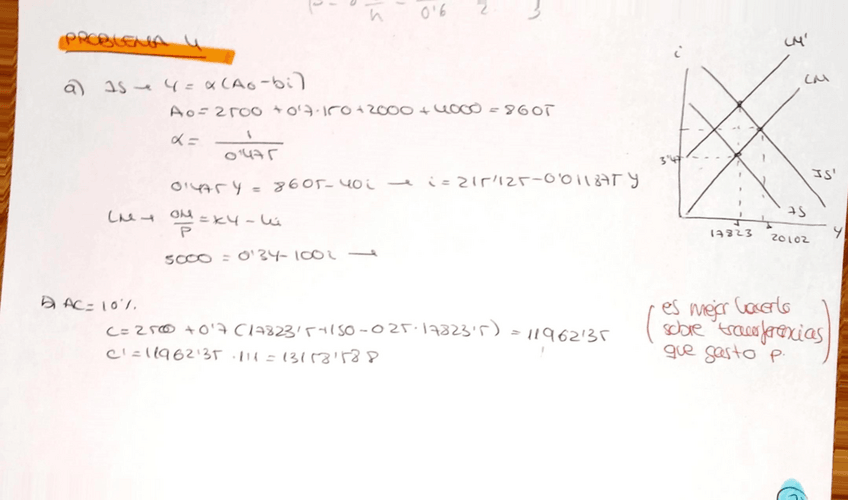 PROBLEMA 4
a) IS → Y = α(A0-bi)
A0 = 2500 + 0'7·150 + 2000 + 4000 = 8605
α = 1
0'475
0'475 Y = 8605-40i → i = 215'125-0'011875 Y
LM → OM/P = KY - hi
5000 = 0'3Y-100i →
b) AC = 10%
C = 2500 + 0'7 (17823'5+150-025·17823'5) = 11962'35
C' = 11962'35 · 1'1 = 13158'588
(es mejor hacerlo
sobre transferencias
que gasto p.)
i
LM'
LM
3'47
IS'
IS
17823
20102
Y